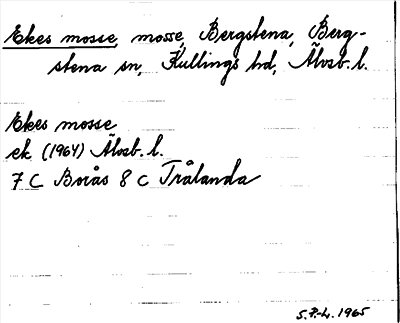 Ekes mosse, mosse, Bergstena, Berg-
stena sn, Kullings hd, Älvsb. l.
Ekes mosse
ek (1964) Älvsb. l.
7 C Borås 8 C Trålanda
S.P.-L. 1965